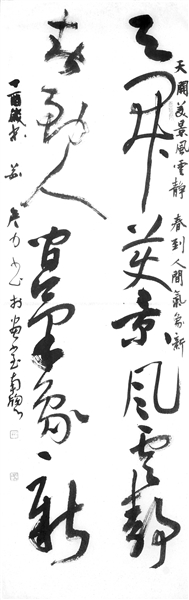 天開美景風雲靜 春到人間氣象新
天開美景風雲靜
春到人間氣象新
丁酉歲